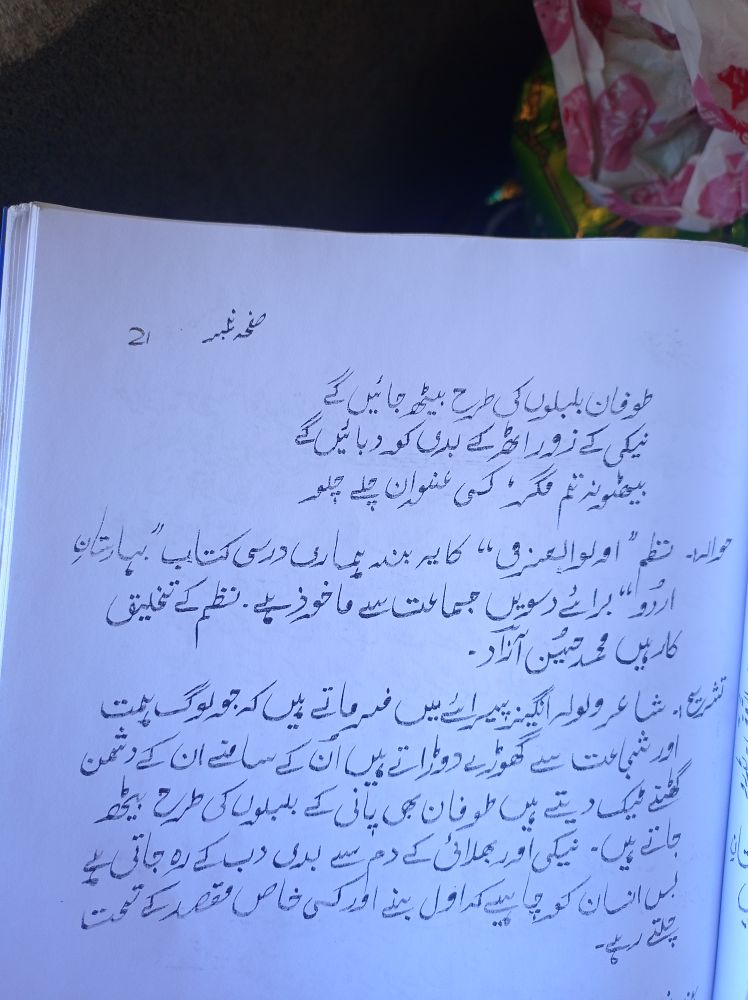 صفحہ نمبر 21
طوفان بلبلوں کی طرح بیٹھ جائیں گے
نیکی کے زور اٹھ کے بدی کو دبائیں گے
بیٹھو نہ تم مگر، کسی عنوان چلے چلو
حوالہ:۔ نظم "اولوالعزمی" کا یہ بند ہماری درسی کتاب "بہارستانِ
اردُو" برائے دسویں جماعت سے ماخوذ ہے۔ نظم کے تخلیق
کار ہیں محمد حسین آزاد۔
تشریح:۔ شاعر ولولہ انگیز پیرائے میں فرماتے ہیں کہ جو لوگ ہمت
اور شجاعت سے گھوڑے دوڑاتے ہیں اُن کے سامنے ان کے دشمن
گھٹنے ٹیک دیتے ہیں طوفان بھی پانی کے بلبلوں کی طرح بیٹھ
جاتے ہیں۔ نیکی اور بھلائی کے دم سے بدی دب کے رہ جاتی ہے
بس انسان کو چاہیے کہ اول بنے اور کسی خاص مقصد کے تحت
چلتے رہے۔